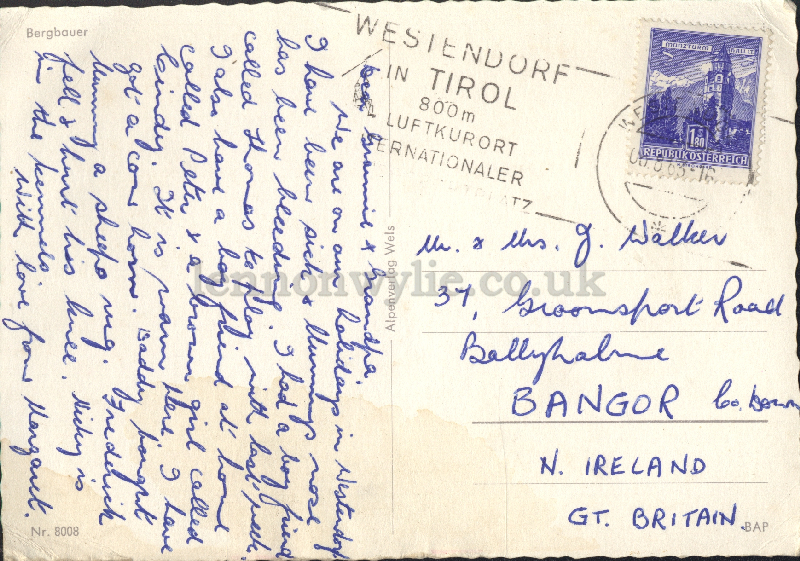 Bergbauer
Dear Grannie & Grandpa,
We are on our holidays in Westendorf
I have been sick & Mummys nose
has been bleeding. I had a boy friend
called Thomas to play with last week.
I also have a boy friend at home
called Peter & a brown girl called
Cindy. It is warm here. I have
got a cow horn. Daddy bought
Mummy a sheeps rug. Frederick
fell & hurt his knee. Nicky is
in the kennels.
With love from Margaret.
Nr. 8008
Alpenverlag Wels
WESTENDORF
IN TIROL
800m
LUFTKURORT
TERNATIONALER
PLATZ
1.80
REPUBLIK ÖSTERREICH
Mr. & Mrs. J. Walker
37, Groomsport Road
Ballyholme
BANGOR Co. Down
N. IRELAND
GT. BRITAIN.
BAP
lennonwylie.co.uk